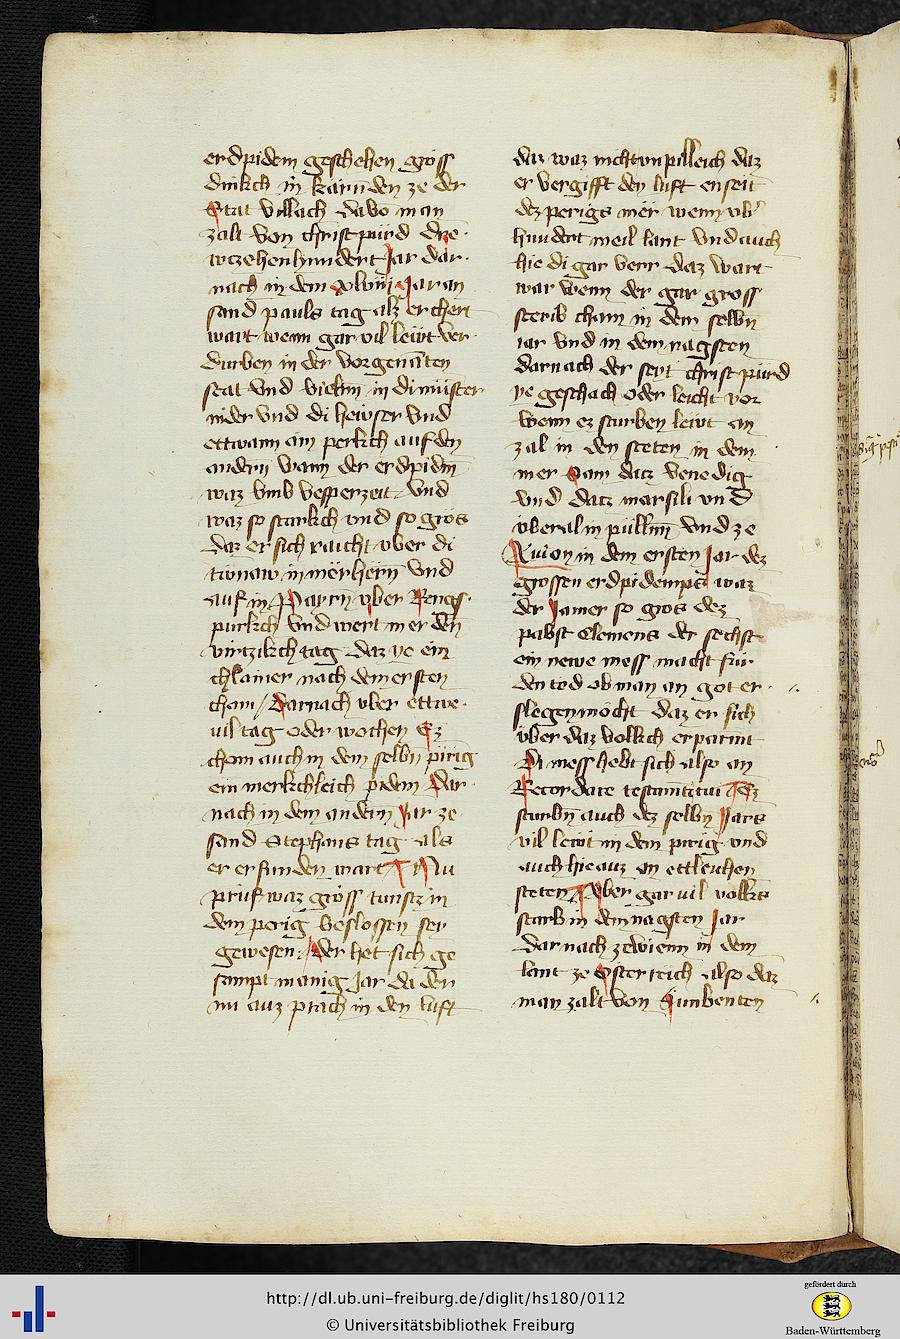 erdpidem geschehen gröss
dinkch in kärnden ze der
Stat villach davo man
zalt von christ pürd dre
wzehenhundert Jar dar
nach in dem xlviij Jar an
sand pauls tag alz er chert
wart wenn gar vil lewt ver
durben in der vorgenāten
stat vnd vielen in di münster
nider vnd di hewser vnd
ettwann ain perkch auf den
andern wann der erdpidm
waz vmb vesperzeit vnd
waz so starkch vnd so gros
daz er sich raicht vber di
tunaw in mërhern vnd
auf in Payrn vber Regns
purkch vnd wert mer den
virtzikch tag daz ye ein
chlainer nach dem ersten
cham / Darnach vber ettwe
vil tag oder wochen Ez
chom auch in dem selbn pirig
ein merkchleich pidem Dar
nach in dem andern Jar ze
sand Stephans tag als
er erfunden wart Nu
prüf waz gröss tunst in
dem perig beslossen sey
gewesen / der het sich ge
sampt manig Jar da der
nu auz prach in den luft
daz waz nicht vnpilleich daz
er vergifft den luft enseit
dez perigs mër wenn vbˀ
hundert meil lant vnd auch
hie di gar verr daz wart
war wenn der gar gross
sterib cham in dem selbn
iar vnd in dem nagsten
darnach der seyt christ pürd
ye geschach oder leicht vor
wenn ez sturben lewt an
zal in den steten in dem
mer Sam datz venedig
vnd datz marsili vnd
vberal in püllnn vnd ze
Auion in dem ersten Jar dez
grossen erdpidemps waz
der Jamer so gros dez
pabst Clemens der sechst
ein newe mess macht für
den tod ob man an got er
flegen möcht daz er sich
vber daz volkch erparmt
Di mess hebt sich also an
Recordare testamenti tui Ez
sturbn auch dez selbn Jars
vil lewt in dem pirig vnd
auch hie auz an ettleichen
steten Aber gar vil volks
starb in dem nagsten Jar
dar nach ze wienn in dem
lant ze Österreich also daz
man zalt von Sunbenten
http://dl.ub.uni-freiburg.de/diglit/hs180/0112
© Universitätsbibliothek Freiburg
gefördert durch
Baden-Württemberg